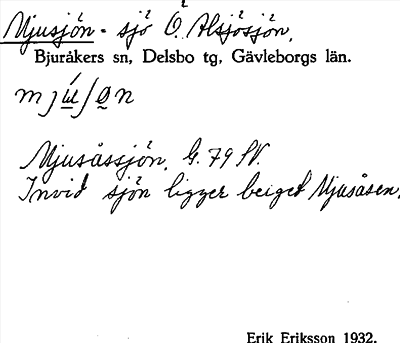 Mjusjön - sjö Ö. Alsjösjön.
Bjuråkers sn, Delsbo tg, Gävleborgs län.
Mjusåssjön. G. 79 SV.
Invid sjön ligger berget Mjusåsen.
Erik Eriksson 1932.